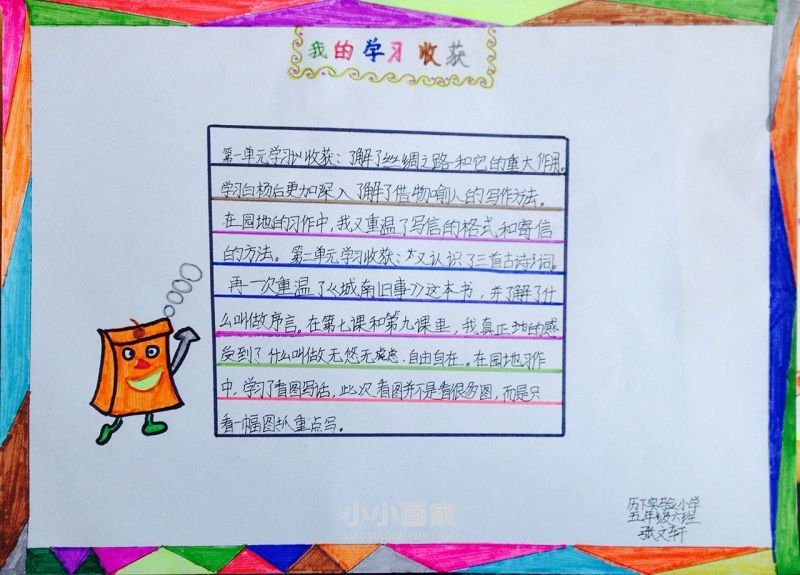 我的学习收获
第一单元学习收获：了解了丝绸之路和它的重大作用。
学习白杨后更加深入了解了借物喻人的写作方法。
在园地的习作中，我又重温了写信的格式和寄信
的方法。第二单元学习收获：又认识了三首古诗词。
再一次重温了《城南旧事》这本书，并了解了什
么叫做序言。在第七课和第九课里，我真正地的感
受到了什么叫做无忧无虑，自由自在。在园地习作
中，学习了看图写话，此次看图并不是看很多图，而是只
看一幅图抓重点写。
历下实验小学
五年级六班
张文轩
小小画家
XIAOXIAOHUAJIA.COM